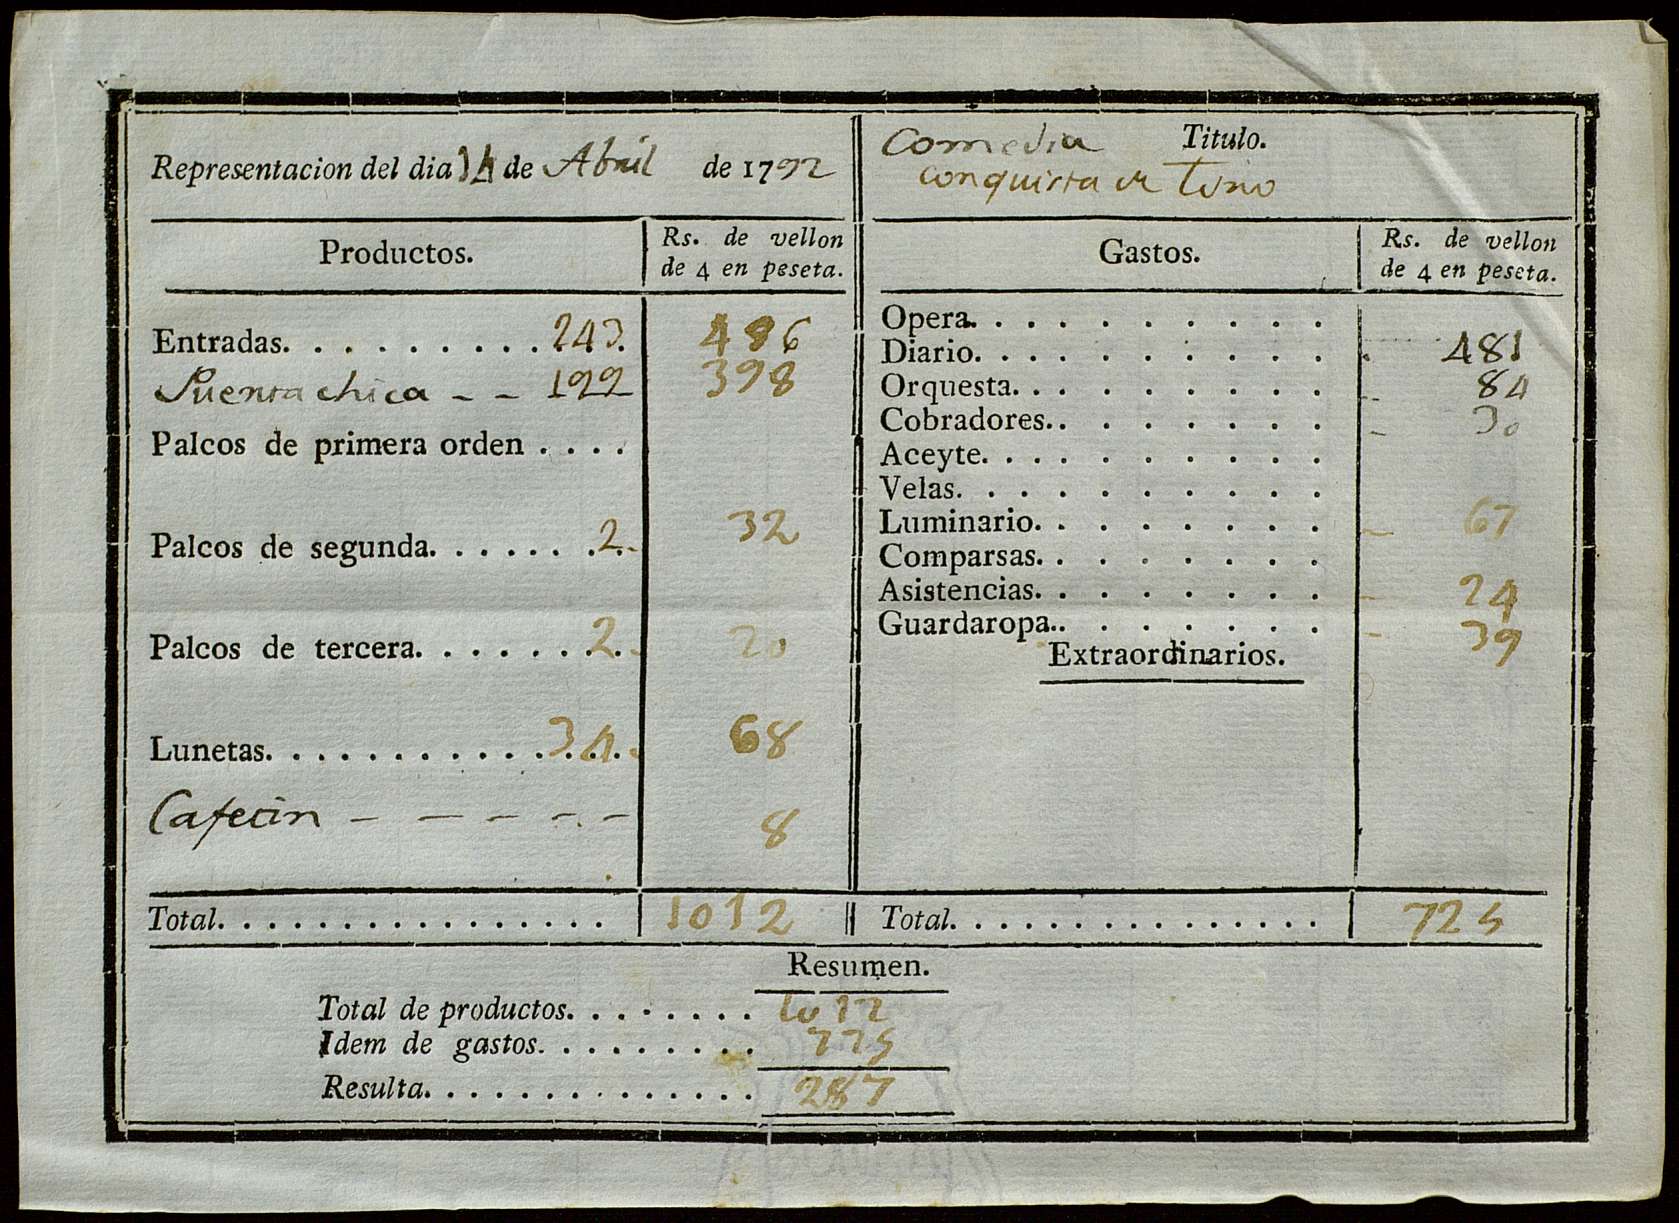 Representacion del dia 14 de Abril de 1792
Comedia Titulo.
Conquista de Tiro
Productos. Rs. de vellon de 4 en peseta.
Entradas. . . . . . . . . . . . . 243. 486
Puerta chica - - 199 398
Palcos de primera orden . . . .
Palcos de segunda. . . . . . . 2. 32
Palcos de tercera. . . . . . . . 2. 20
Lunetas. . . . . . . . . . . . . . 34. 68
Cafecin - - - - - 8
Total. . . . . . . . . . . . . . . . . 1012
Gastos. Rs. de vellon de 4 en peseta.
Opera. . . . . . . . . . .
Diario. . . . . . . . . . . 481
Orquesta. . . . . . . . . 84
Cobradores. . . . . . . . 30
Aceyte. . . . . . . . . . .
Velas. . . . . . . . . . .
Luminario. . . . . . . . 67
Comparsas. . . . . . . .
Asistencias. . . . . . . . 24
Guardaropa. . . . . . . . 39
Extraordinarios.
Total. . . . . . . . . . . . . . . 725
Resumen.
Total de productos. . . . . . . . 1012
Idem de gastos. . . . . . . . . 725
Resulta. . . . . . . . . . . . . . 287